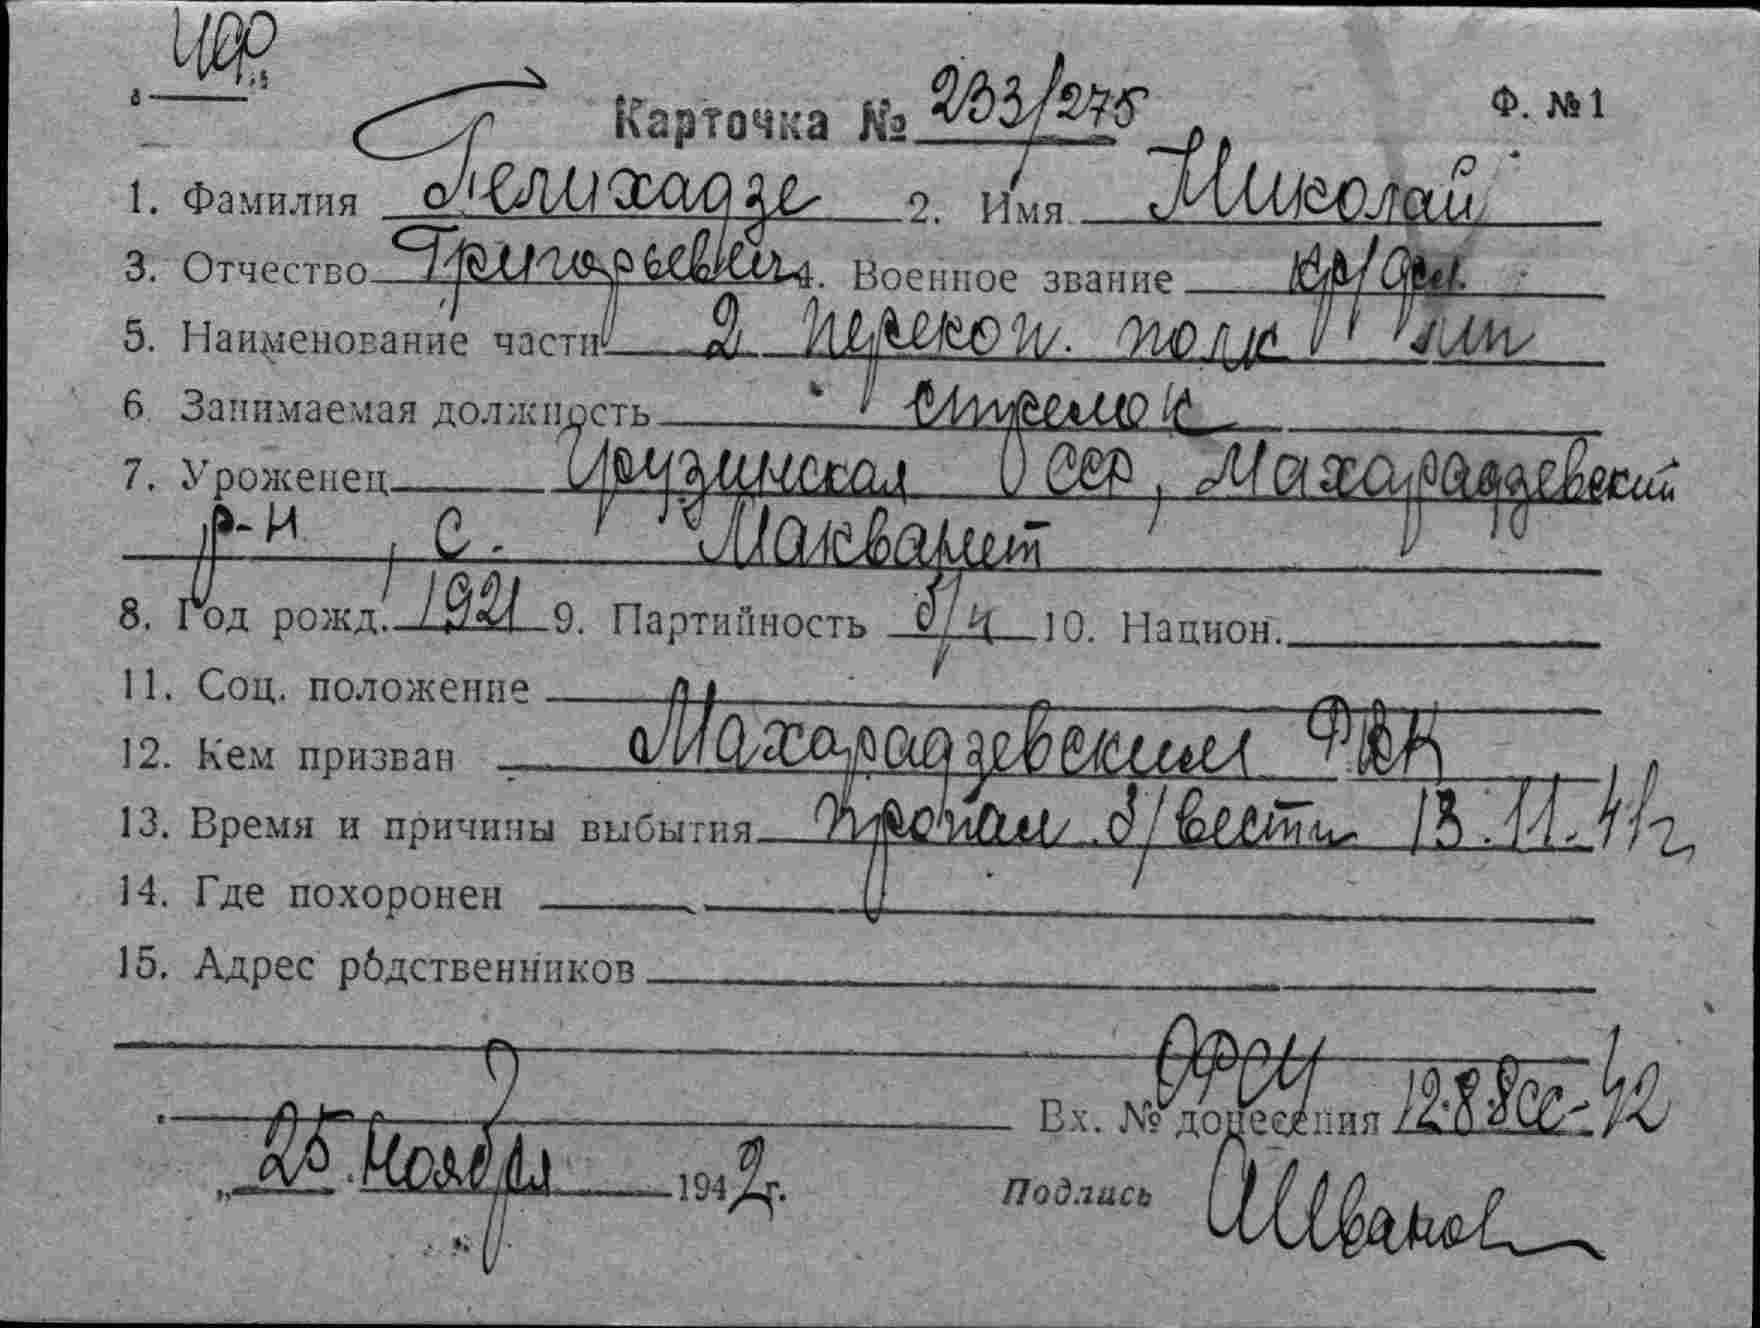 Карточка № 233/275 Ф. № 1
1. Фамилия Гелихадзе 2. Имя Николай
3. Отчество Григорьевич 4. Военное звание кр/фл.
5. Наименование части 2 Перекоп. полк м п
6. Занимаемая должность стрелок
7. Уроженец Грузинская ССР, Махарадзевский
р-н, с. Макванет
8. Год рожд. 1921 9. Партийность б/п 10. Национ.
11. Соц. положение
12. Кем призван Махарадзевским РВК
13. Время и причины выбытия пропал б/вести 13.11.41г.
14. Где похоронен
15. Адрес родственников
Вх. № донесения 1288сс-42
„25" ноября 1942г. Подпись Иванов